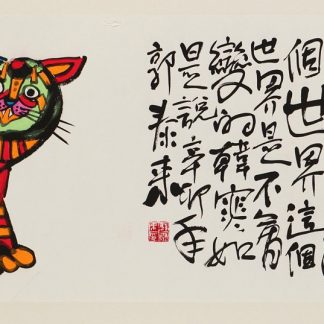 個世界這個
世界是不會
變的韓寒如
是說辛卯年
郭泰来